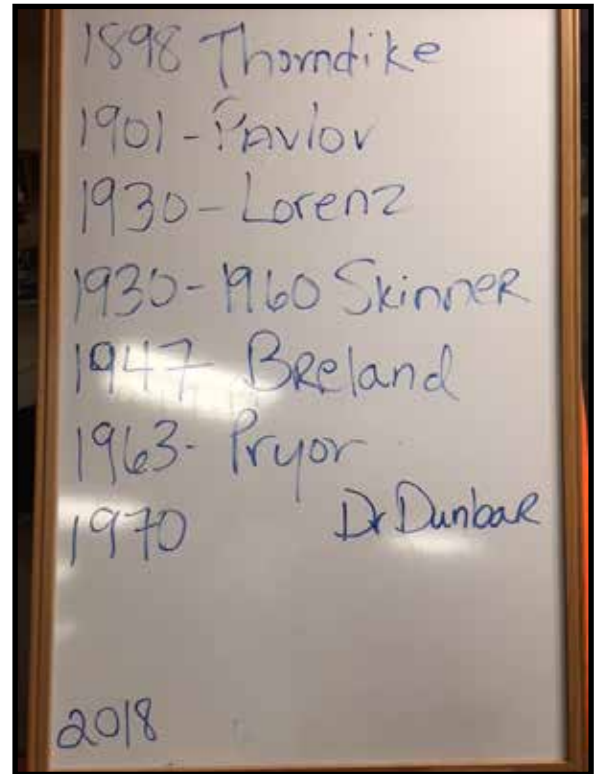 1898 Thorndike
1901 - Pavlov
1930 - Lorenz
1930 - 1960 Skinner
1947 - Breland
1963 - Pryor
1970 Dr Dunbar
2018